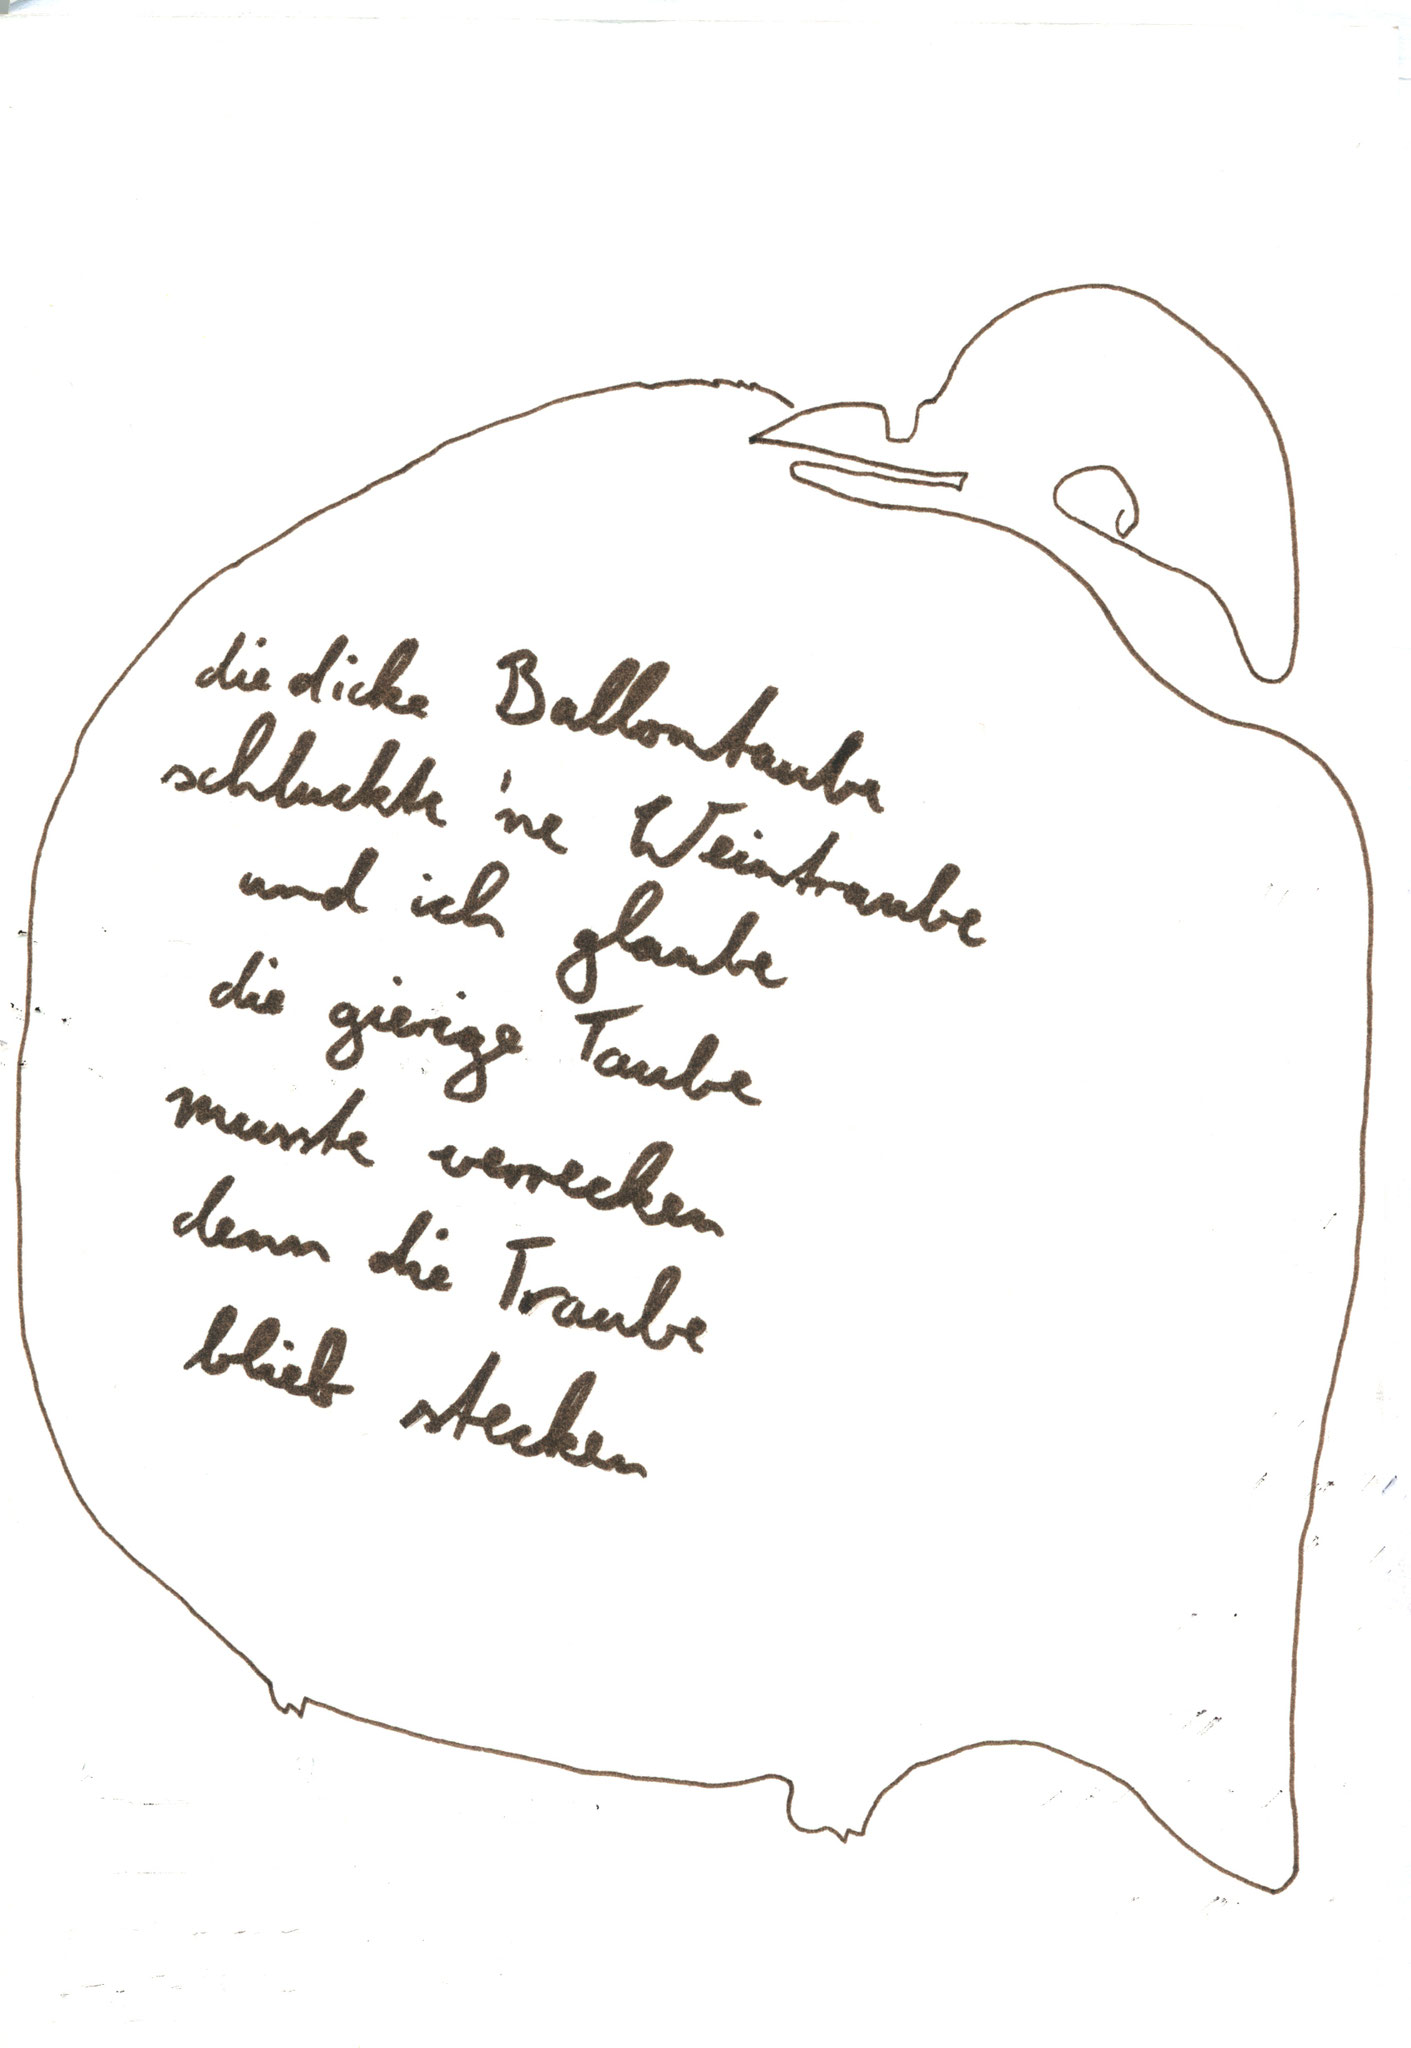 die dicke Ballontaube
schluckte 'ne Weintraube
und ich glaube
die gierige Taube
musste verrecken
denn die Traube
blieb stecken